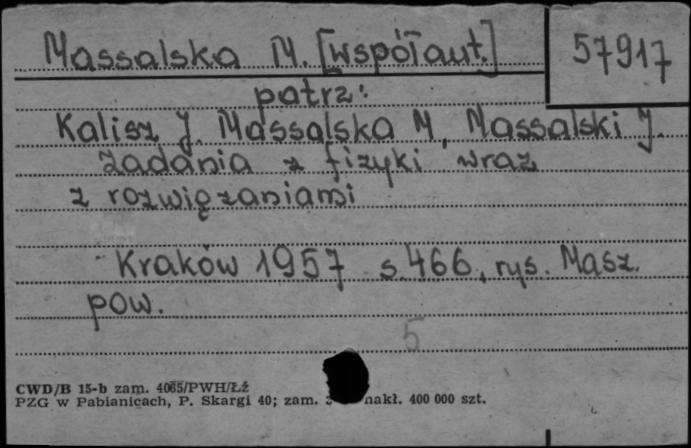 Massalska M. [współaut.]
57917
patrz:
Kalisz J. Massalska M, Massalski J.
Zadania z fizyki wraz
z rozwiązaniami
Kraków 1957 s. 466, rys. Masz.
pow.
5
CWD/B 15-b zam. 4065/PWH/ŁŻ
PZG w Pabianicach, P. Skargi 40; zam. nakł. 400 000 szt.